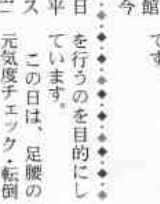 館
今
です
日
平
ス
を行うのを目的にし
ています。
この日は、足腰の
元気度チェック・転倒